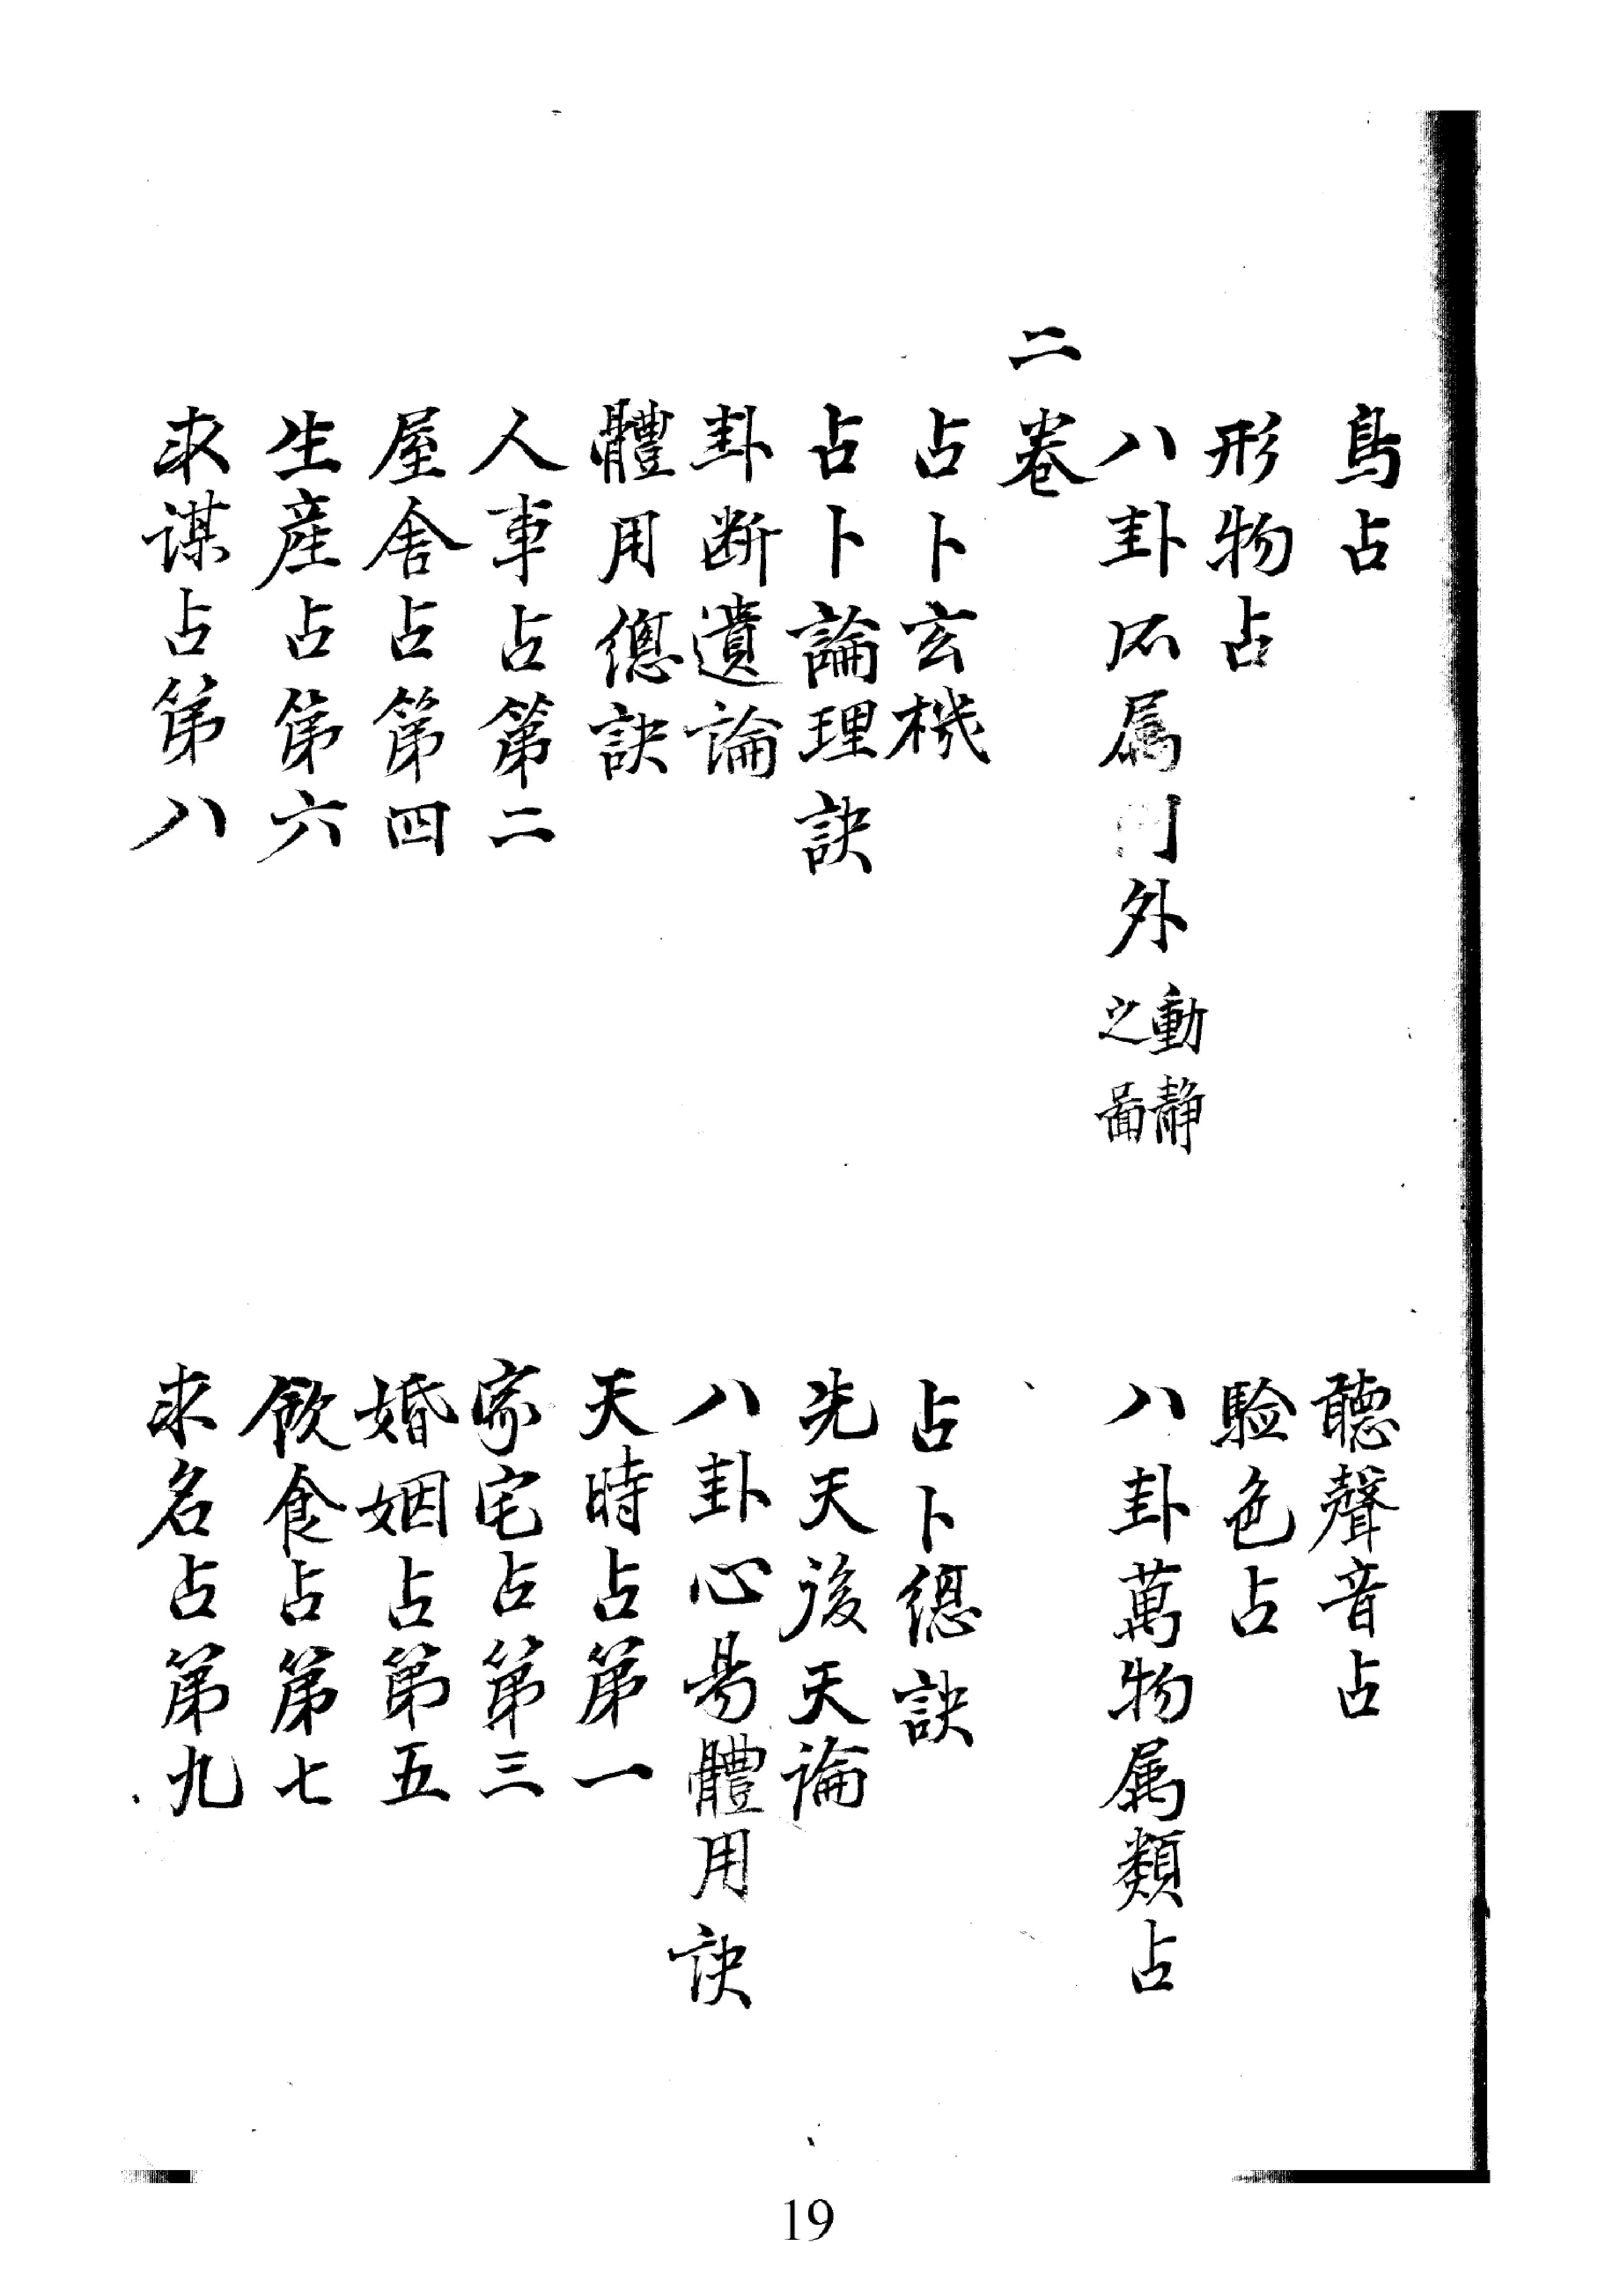 鳥占
聽聲音占
形物占
驗色占
八卦所属門外動静之圖
八卦萬物属類占
二卷
占卜玄機
占卜緫訣
占卜論理訣
先天後天論
卦断遺論
八卦心昜體用訣
體用緫訣
天時占第一
人事占第二
家宅占第三
屋舍占第四
婚姻占第五
生産占第六
飲食占第七
求謀占第八
求名占第九
19